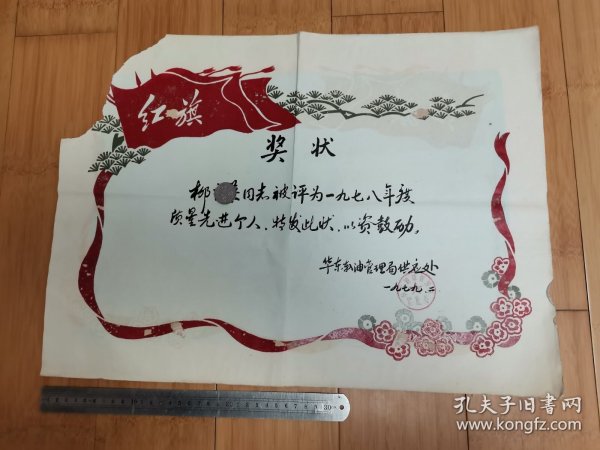 红旗
奖状
柳 同志被评为一九七八年度
质量先进个人、特发此状、以资鼓励。
华东石油管理局供应处
一九七九.二
30
孔夫子旧书网
www.kongfz.com